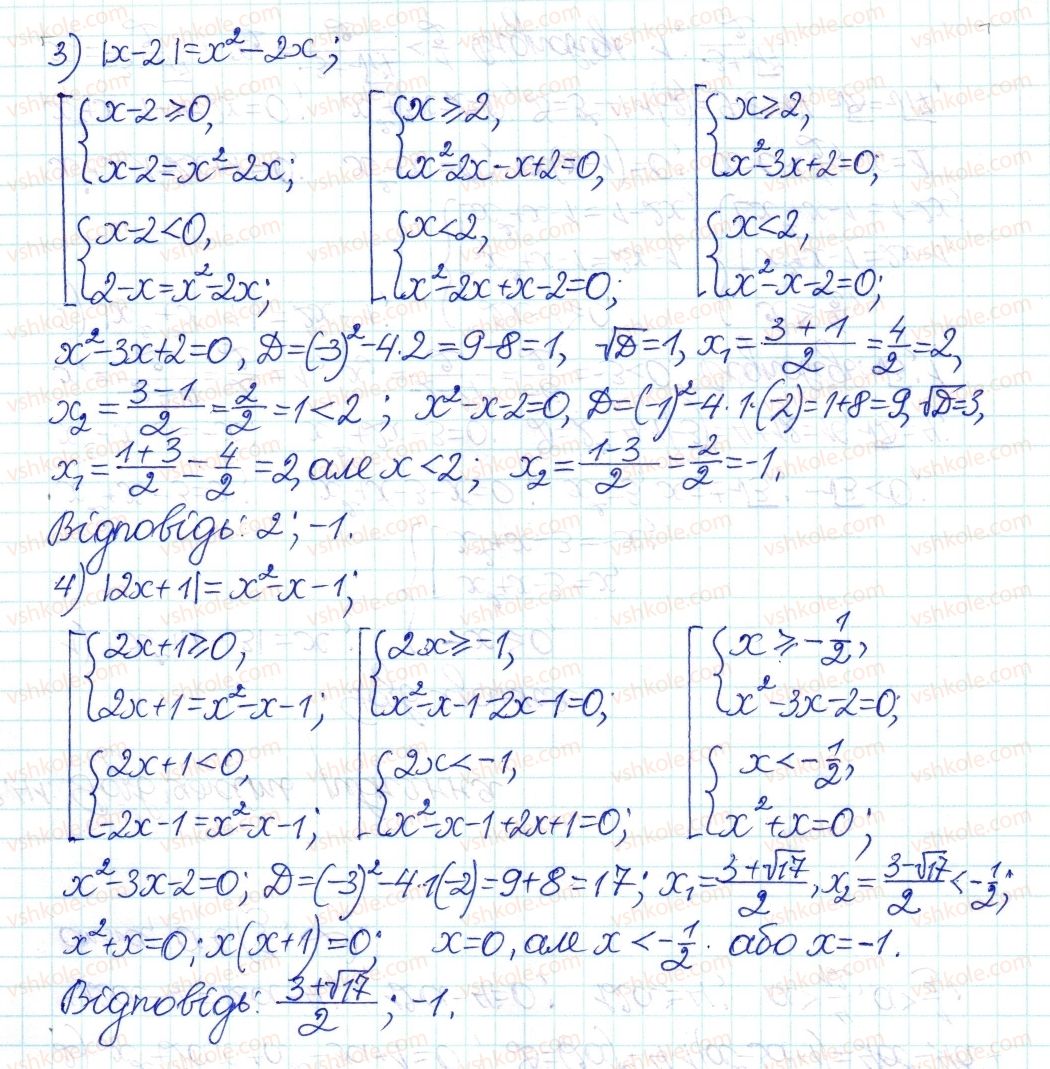 3) |x-2|=x²-2x;
[ { x-2≥0, x-2=x²-2x; { x-2<0, 2-x=x²-2x;
[ { x≥2, x²-2x-x+2=0, { x<2, x²-2x+x-2=0;
[ { x≥2, x²-3x+2=0; { x<2, x²-x-2=0;
x²-3x+2=0, D=(-3)²-4·2=9-8=1, √D=1, x₁=(3+1)/2=4/2=2,
x₂=(3-1)/2=2/2=1<2; x²-x-2=0, D=(-1)²-4·1·(-2)=1+8=9, √D=3,
x₁=(1+3)/2=4/2=2, але x<2; x₂=(1-3)/2=-2/2=-1.
Відповідь: 2; -1.
4) |2x+1|=x²-x-1;
[ { 2x+1≥0, 2x+1=x²-x-1; { 2x+1<0, -2x-1=x²-x-1;
[ { 2x≥-1, x²-x-1-2x-1=0; { 2x<-1, x²-x-1+2x+1=0;
[ { x≥-1/2, x²-3x-2=0; { x<-1/2, x²+x=0;
x²-3x-2=0; D=(-3)²-4·1(-2)=9+8=17; x₁=(3+√17)/2, x₂=(3-√17)/2<-1/2;
x²+x=0; x(x+1)=0; x=0, але x<-1/2. або x=-1.
Відповідь: (3+√17)/2; -1.